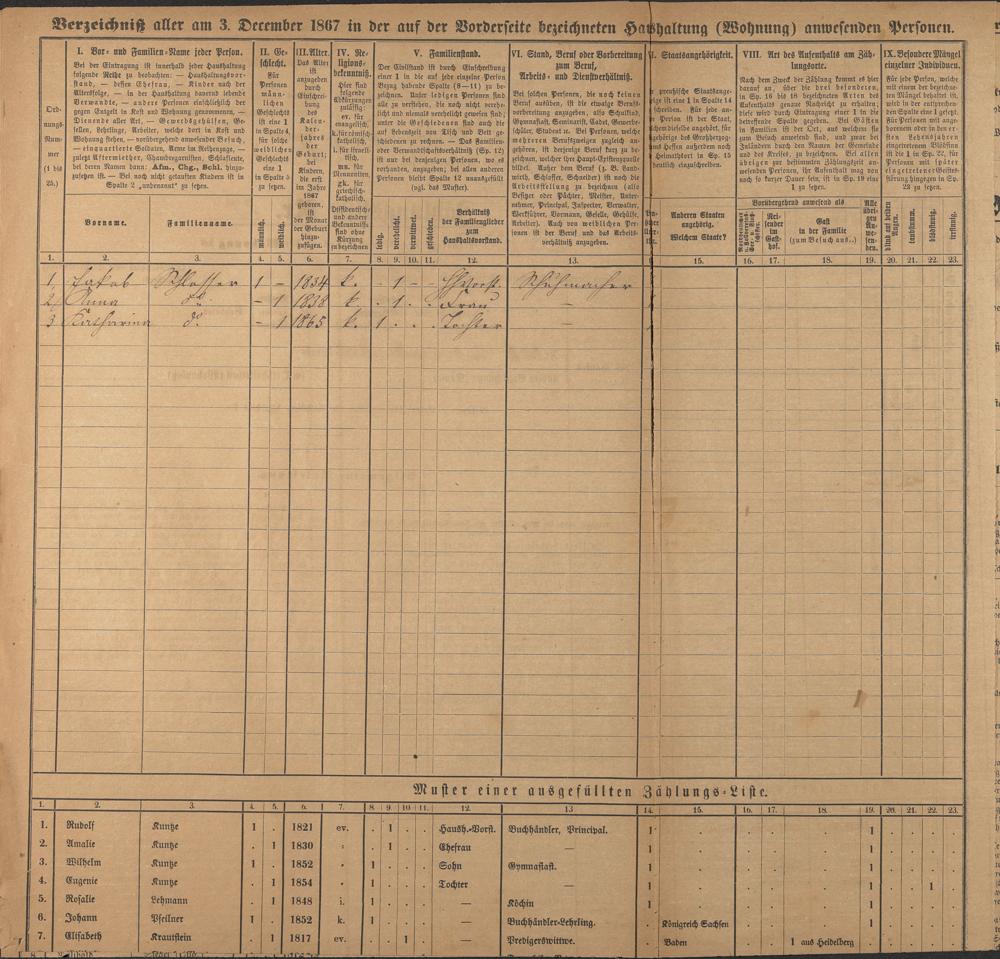 Verzeichniß aller am 3. December 1867 in der auf der Vorderseite bezeichneten Haushaltung (Wohnung) anwesenden Personen.
Ord-
nungs-
Num-
mer
(1 bis
25.)
I. Vor- und Familien-Name jeder Person.
Bei der Eintragung ist innerhalb jeder Haushaltung
folgende Reihe zu beobachten: — Haushaltungsvor-
stand, — dessen Ehefrau, — Kinder nach der
Altersfolge, — in der Haushaltung dauernd lebende
Verwandte, — andere Personen einschließlich der
gegen Entgelt in Kost und Wohnung genommenen, —
Dienende aller Art, — Gewerbsgehülfen, Ge-
sellen, Lehrlinge, Arbeiter, welche dort in Kost und
Wohnung stehen, — vorübergehend anwesender Besuch,
— einquartierte Soldaten, Arme im Reihenzuge, —
zuletzt Aftermiether, Chambregarnisten, Schlafleute,
bei deren Namen dann: Afm., Chg., Schl. hinzu-
zusetzen ist. — Bei noch nicht getauften Kindern ist in
Spalte 2 „unbenannt“ zu setzen.
Vorname.
Familienname.
II. Ge-
schlecht.
Für
Personen
männ-
lichen
Geschlechts
ist eine 1
in Spalte 4,
für solche
weiblichen
Geschlechts
eine 1
in Spalte 5
zu setzen.
männlich.
weiblich.
III. Alter.
Das Alter
ist
anzugeben
durch
Einschrei-
bung
des
Kalen-
der-
jahres
der
Geburt;
bei
Kindern,
die erst
im Jahre
1867
geboren,
ist
der Monat
der Geburt
hinzu-
zufügen.
IV. Re-
ligions-
bekenntniß.
Hier sind
folgende
Abkürzungen
zulässig:
ev. für
evangelisch,
k. für römisch-
katholisch,
i. für israeli-
tisch,
mn. für
Mennoniten,
gk. für
griechisch-
katholisch.
Dissidentisch
und andere
Bekenntnisse
sind ohne
Kürzung
zu bezeichnen
V. Familienstand.
Der Civilstand ist durch Einschreibung
einer 1 in die auf jede einzelne Person
Bezug habende Spalte (8—11) zu be-
zeichnen. Unter ledigen Personen sind
alle zu verstehen, die noch nicht verehe-
licht und niemals verehelicht gewesen sind;
unter die Geschiedenen sind auch die
auf Lebenszeit von Tisch und Bett ge-
schiedenen zu rechnen. — Das Familien-
oder Verwandtschaftsverhältniß (Sp. 12)
ist nur bei denjenigen Personen, wo es
vorhanden, anzugeben; bei allen anderen
Personen bleibt Spalte 12 unausgefüllt
(vgl. das Muster).
ledig.
verehelicht.
verwittwet.
geschieden.
Verhältniß
der Familienglieder
zum
Haushaltsvorstand.
VI. Stand, Beruf oder Vorbereitung
zum Beruf,
Arbeits- und Dienstverhältniß.
Bei solchen Personen, die noch keinen
Beruf ausüben, ist die etwaige Berufs-
vorbereitung anzugeben, also Schulkind,
Gymnasiast, Seminarist, Cadet, Gewerbe-
schüler, Student 2c. Bei Personen, welche
mehreren Berufszweigen zugleich an-
gehören, ist derjenige Beruf kurz zu be-
zeichnen, welcher ihre Haupt-Existenzquelle
bildet. Außer dem Beruf (z. B. Land-
wirth, Schlosser, Schneider) ist noch die
Arbeitsstellung zu bezeichnen (also
Besitzer oder Pächter, Meister, Unter-
nehmer, Principal, Inspector, Verwalter,
Werkführer, Vormann, Geselle, Gehülfe,
Arbeiter). Auch von weiblichen Per-
sonen ist der Beruf und das Arbeits-
verhältniß anzugeben.
Staatsangehörigkeit.
preußische Staatsange-
ist eine 1 in Spalte 14
Für jede an-
Person ist der Staat,
angehört, für
außerdem noch
Heimathsort in Sp. 15
einzuschreiben.
Anderen Staaten
angehörig.
Welchem Staate?
VIII. Art des Aufenthalts am Zäh-
lungsorte.
Nach dem Zweck der Zählung kommt es hier
darauf an, über die drei besonderen,
in Sp. 16 bis 18 bezeichneten Arten des
Aufenthalts genaue Nachricht zu erhalten;
diese wird durch Eintragung einer 1 in die
betreffende Spalte gegeben. Bei Gästen
in Familien ist der Ort, aus welchem sie
zum Besuch anwesend sind, und zwar bei
Inländern durch den Namen der Gemeinde
und des Kreises, zu bezeichnen. Bei allen
übrigen zur bestimmten Zählungszeit an-
wesenden Personen, ihr Aufenthalt mag von
noch so kurzer Dauer sein, ist in Sp. 19 eine
1 zu setzen.
Vorübergehend anwesend als
Rei-
sender
im
Gast-
hof.
Gast
in der Familie
(zum Besuch aus..)
Alle
übri-
gen
An-
we-
sen-
den.
IX. Besondere Mängel
einzelner Individuen.
Für jede Person, welche
mit einem der bezeichne-
ten Mängel behaftet ist,
wird in der entsprechen-
den Spalte eine 1 gesetzt.
Für Personen mit ange-
borenem oder in den er-
sten Lebensjahren
eingetretenem Blödsinn
ist die 1 in Sp. 22, für
Personen mit später
eingetretener Geistes-
störung hingegen in Sp.
23 zu setzen.
blind auf beiden
Augen.
taubstumm.
blödsinnig.
irrsinnig.
1. 2. 3. 4. 5. 6. 7. 8. 9. 10. 11. 12. 13. 15. 16. 17. 18. 19. 20. 21. 22. 23.
1, Jakob Schlosser 1 – 1834 k. · 1 – – Hh Vorst. Schuhmacher
2, Anna do. – 1 1838 k. · 1 · · Frau –
3 Katharina do. – 1 1865 k. 1 · · · Tochter –
Muster einer ausgefüllten Zählungs-Liste.
1. 2. 3. 4. 5. 6. 7. 8. 9. 10. 11. 12. 13 14. 15. 16. 17. 18. 19. 20. 21. 22. 23.
1. Rudolf Kuntze 1 . 1821 ev. . 1 . . Haush.-Vorst. Buchhändler, Principal. 1 . . . . 1 . . . .
2. Amalie Kuntze . 1 1830 " . 1 . . Ehefrau — 1 . . . . 1 . . . .
3. Wilhelm Kuntze 1 . 1852 " 1 . . . Sohn Gymnasiast. 1 . . . . 1 . . . .
4. Eugenie Kuntze . 1 1854 " 1 . . . Tochter — 1 . . . . 1 . . 1 .
5. Rosalie Lehmann . 1 1848 i. 1 . . . — Köchin 1 . . . . 1 . . . .
6. Johann Pfeilner 1 . 1852 k. 1 . . . — Buchhändler-Lehrling. . Königreich Sachsen . . . 1 . . . .
7. Elisabeth Krautstein . 1 1817 ev. . . 1 . — Predigerswittwe. . Baden . . 1 aus Heidelberg . . . . .